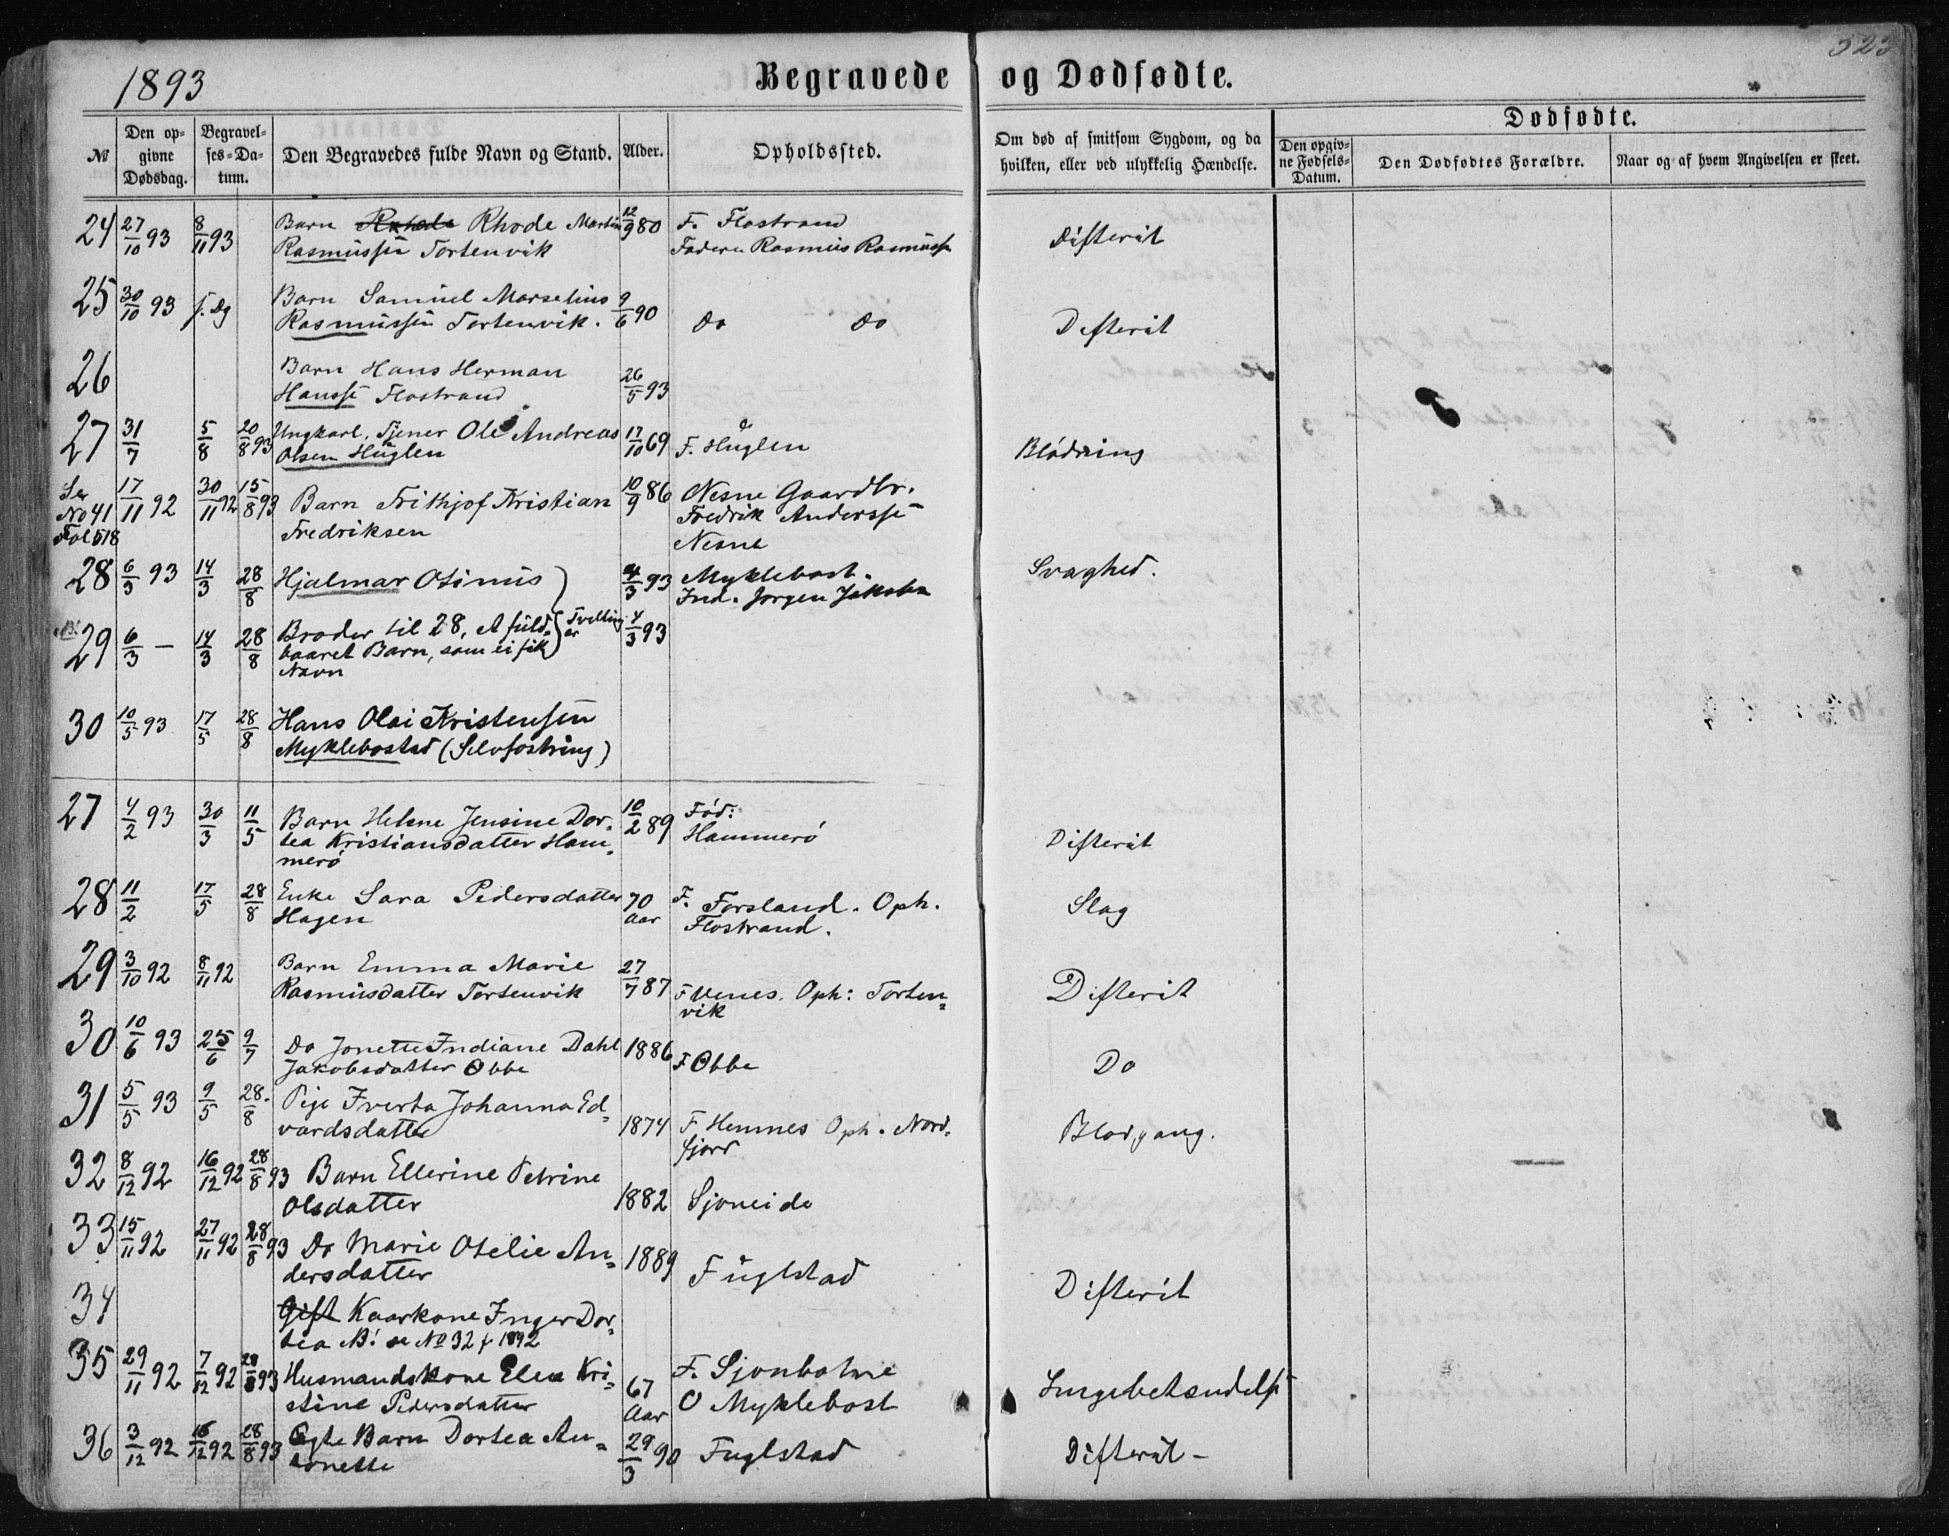 523
1893
Begravede og Dødfødte.
№
Den op-
givne
Dødsdag.
Begravel-
ses-Da-
tum.
Den Begravedes fulde Navn og Stand.
Alder.
Opholdssted.
Om død af smitsom Sygdom, og da
hvilken, eller ved ulykkelig Hændelse.
Dødfødte.
Den opgiv-
ne Fødsels-
Datum.
Den Dødfødtes Forældre.
Naar og af hvem Angivelsen er skeet.
24 27/10 93 8/11 93 Barn Rhode Martin 12/9 80 F. Flostrand Difterit
Rasmussen Tortenvik Faderen Rasmus Rasmussen
25 30/10 93 f. Dg Barn Samuel Marselius 9/6 90
Rasmussen Tortenvik. Do Do Difterit
26 Barn Hans Herman 26/5 93
Hansse Flostrand
27 31/7 5/8 20/8 93 Ungkarl, Tjener Ole Andreas 17/10 69 F. Huglen Blødning
Olsen Huglen
Se No 41 Fol 518 17/11 92 30/11 92 15/8 93 Barn Frithjof Kristian 10/9 86 Nesne Gaardbr.
Fredriksen Fredrik Anderssen
Nesne
28 6/3 93 14/3 28/8 Hjalmar Otinus 4/3 93 Myklebost. Svaghed.
Ind. Jørgen Jakobsen
29 6/3 — 14/3 28/8 Broder til 28, et fuld- Tvilling 4/3 93
baaret Barn, som ei fik er
Navn
30 10/5 93 17/5 28/8 Hans Olai Kristensen
Myklebostad (Selvfostring)
27 4/2 93 30/3 11/5 Barn Helene Jensine Dor- 10/2 89 Fød:
tea Kristiansdatter Ham- Hammerø Difterit
merø
28 11/2 17/5 28/8 Enke Sara Pedersdatter 70 F. Forsland. Oph. Slag
Hagen Aar Flostrand.
29 3/10 92 8/11 92 Barn Emma Marie 27/7 87
Rasmusdatter Tortenvik F Venes. Oph: Torten- Difterit
vik
30 10/6 93 25/6 9/7 Do Jonette Indiane Dahl 1886 F Obbe Do
Jakobsdatter Obbe
31 5/5 93 9/5 28/8 Pige Iverta Johanna Ed-
vardsdatter 1874 F Hemnes Oph. Nord- Blodgang.
fjord
32 8/12 92 16/12 92 28/8 93 Barn Ellerine Petrine
Olsdatter 1882 Sjoneide
33 15/11 92 27/11 92 28/8 93 Do Marie Otelie An- 1889 Fuglstad
dersdatter Difterit
34 Gift Kaarkone Inger Dor-
tea NB! se No 32 f 1892
35 29/11 92 7/12 92 28/8 93 Husmandskone Elen Kri- 67 F. Sjonbotne Lungebetændelse
stine Pedersdatter Aar O Myklebost
36 3/12 92 16/12 92 28/8 93 Egte Barn Dortea An- 29/3 90 Fuglstad Difterit -
tonette